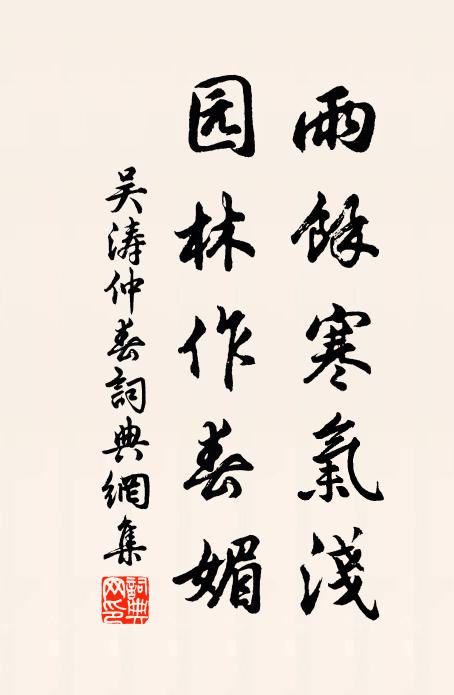 雨餘寒氣淺
园林作春媚
吴涛仲春詞典網集
詞典網印